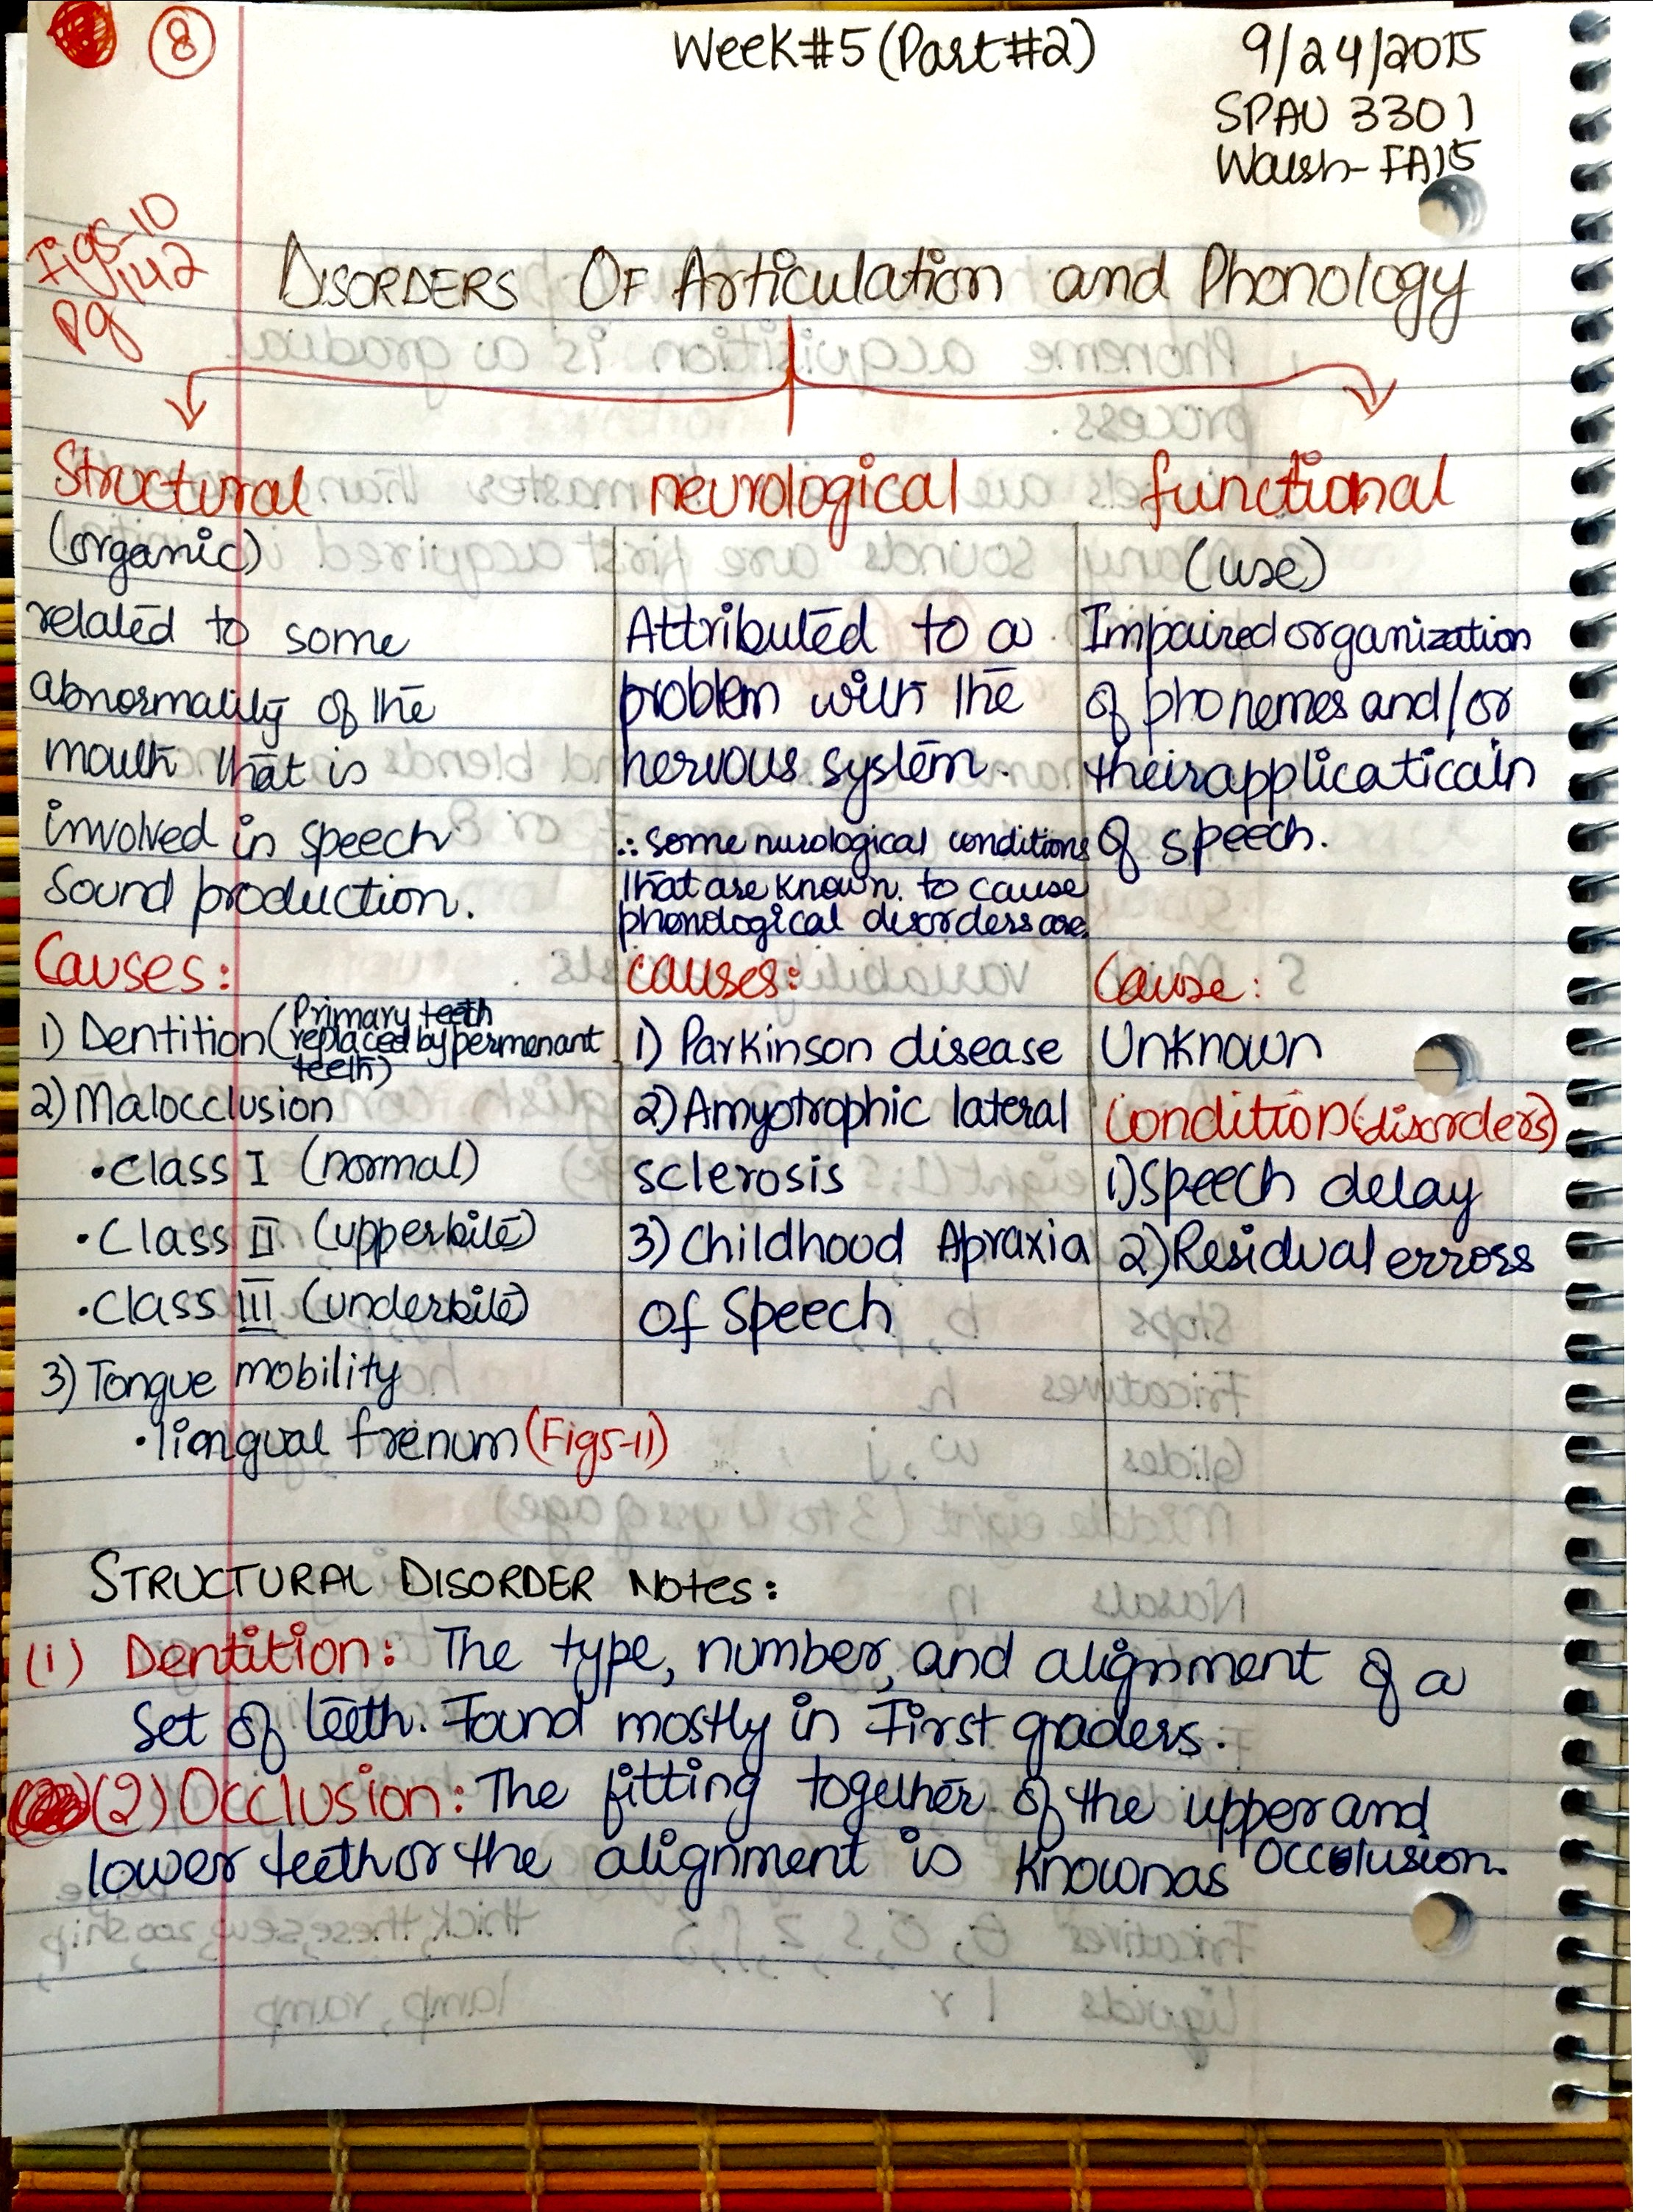 8
Week#5 (Part#2)
9/24/2015
SPAU 3301
Walsh-FA15
Fig5-10
pg 142
DISORDERS OF Articulation and Phonology
Structural
(organic)
related to some
abnormality of the
mouth that is
involved in speech
Sound production.
Causes:
1) Dentition (Primary teeth
replaced by permenant
teeth)
2) Malocclusion
• Class I (normal)
• Class II (upperbite)
• Class III (underbite)
3) Tongue mobility
• liongual frenum (Fig5-11)
neurological
Attributed to a
problem with the
nervous system.
∴ some nurological conditions
that are known to cause
phonological disorders are
causes:
1) Parkinson disease
2) Amyotrophic lateral
sclerosis
3) Childhood Apraxia
of Speech
functional
(use)
Impaired organization
of phonemes and/or
their applicaticain
of speech.
Cause:
Unknown
Condition (disorders)
1) Speech delay
2) Residual errors
STRUCTURAL DISORDER Notes:
(1) Dentition: The type, number, and alignment of a
set of teeth. Found mostly in First graders.
(2) Occlusion: The fitting together of the upper and
lower teeth or the alignment is known as Occolusion.